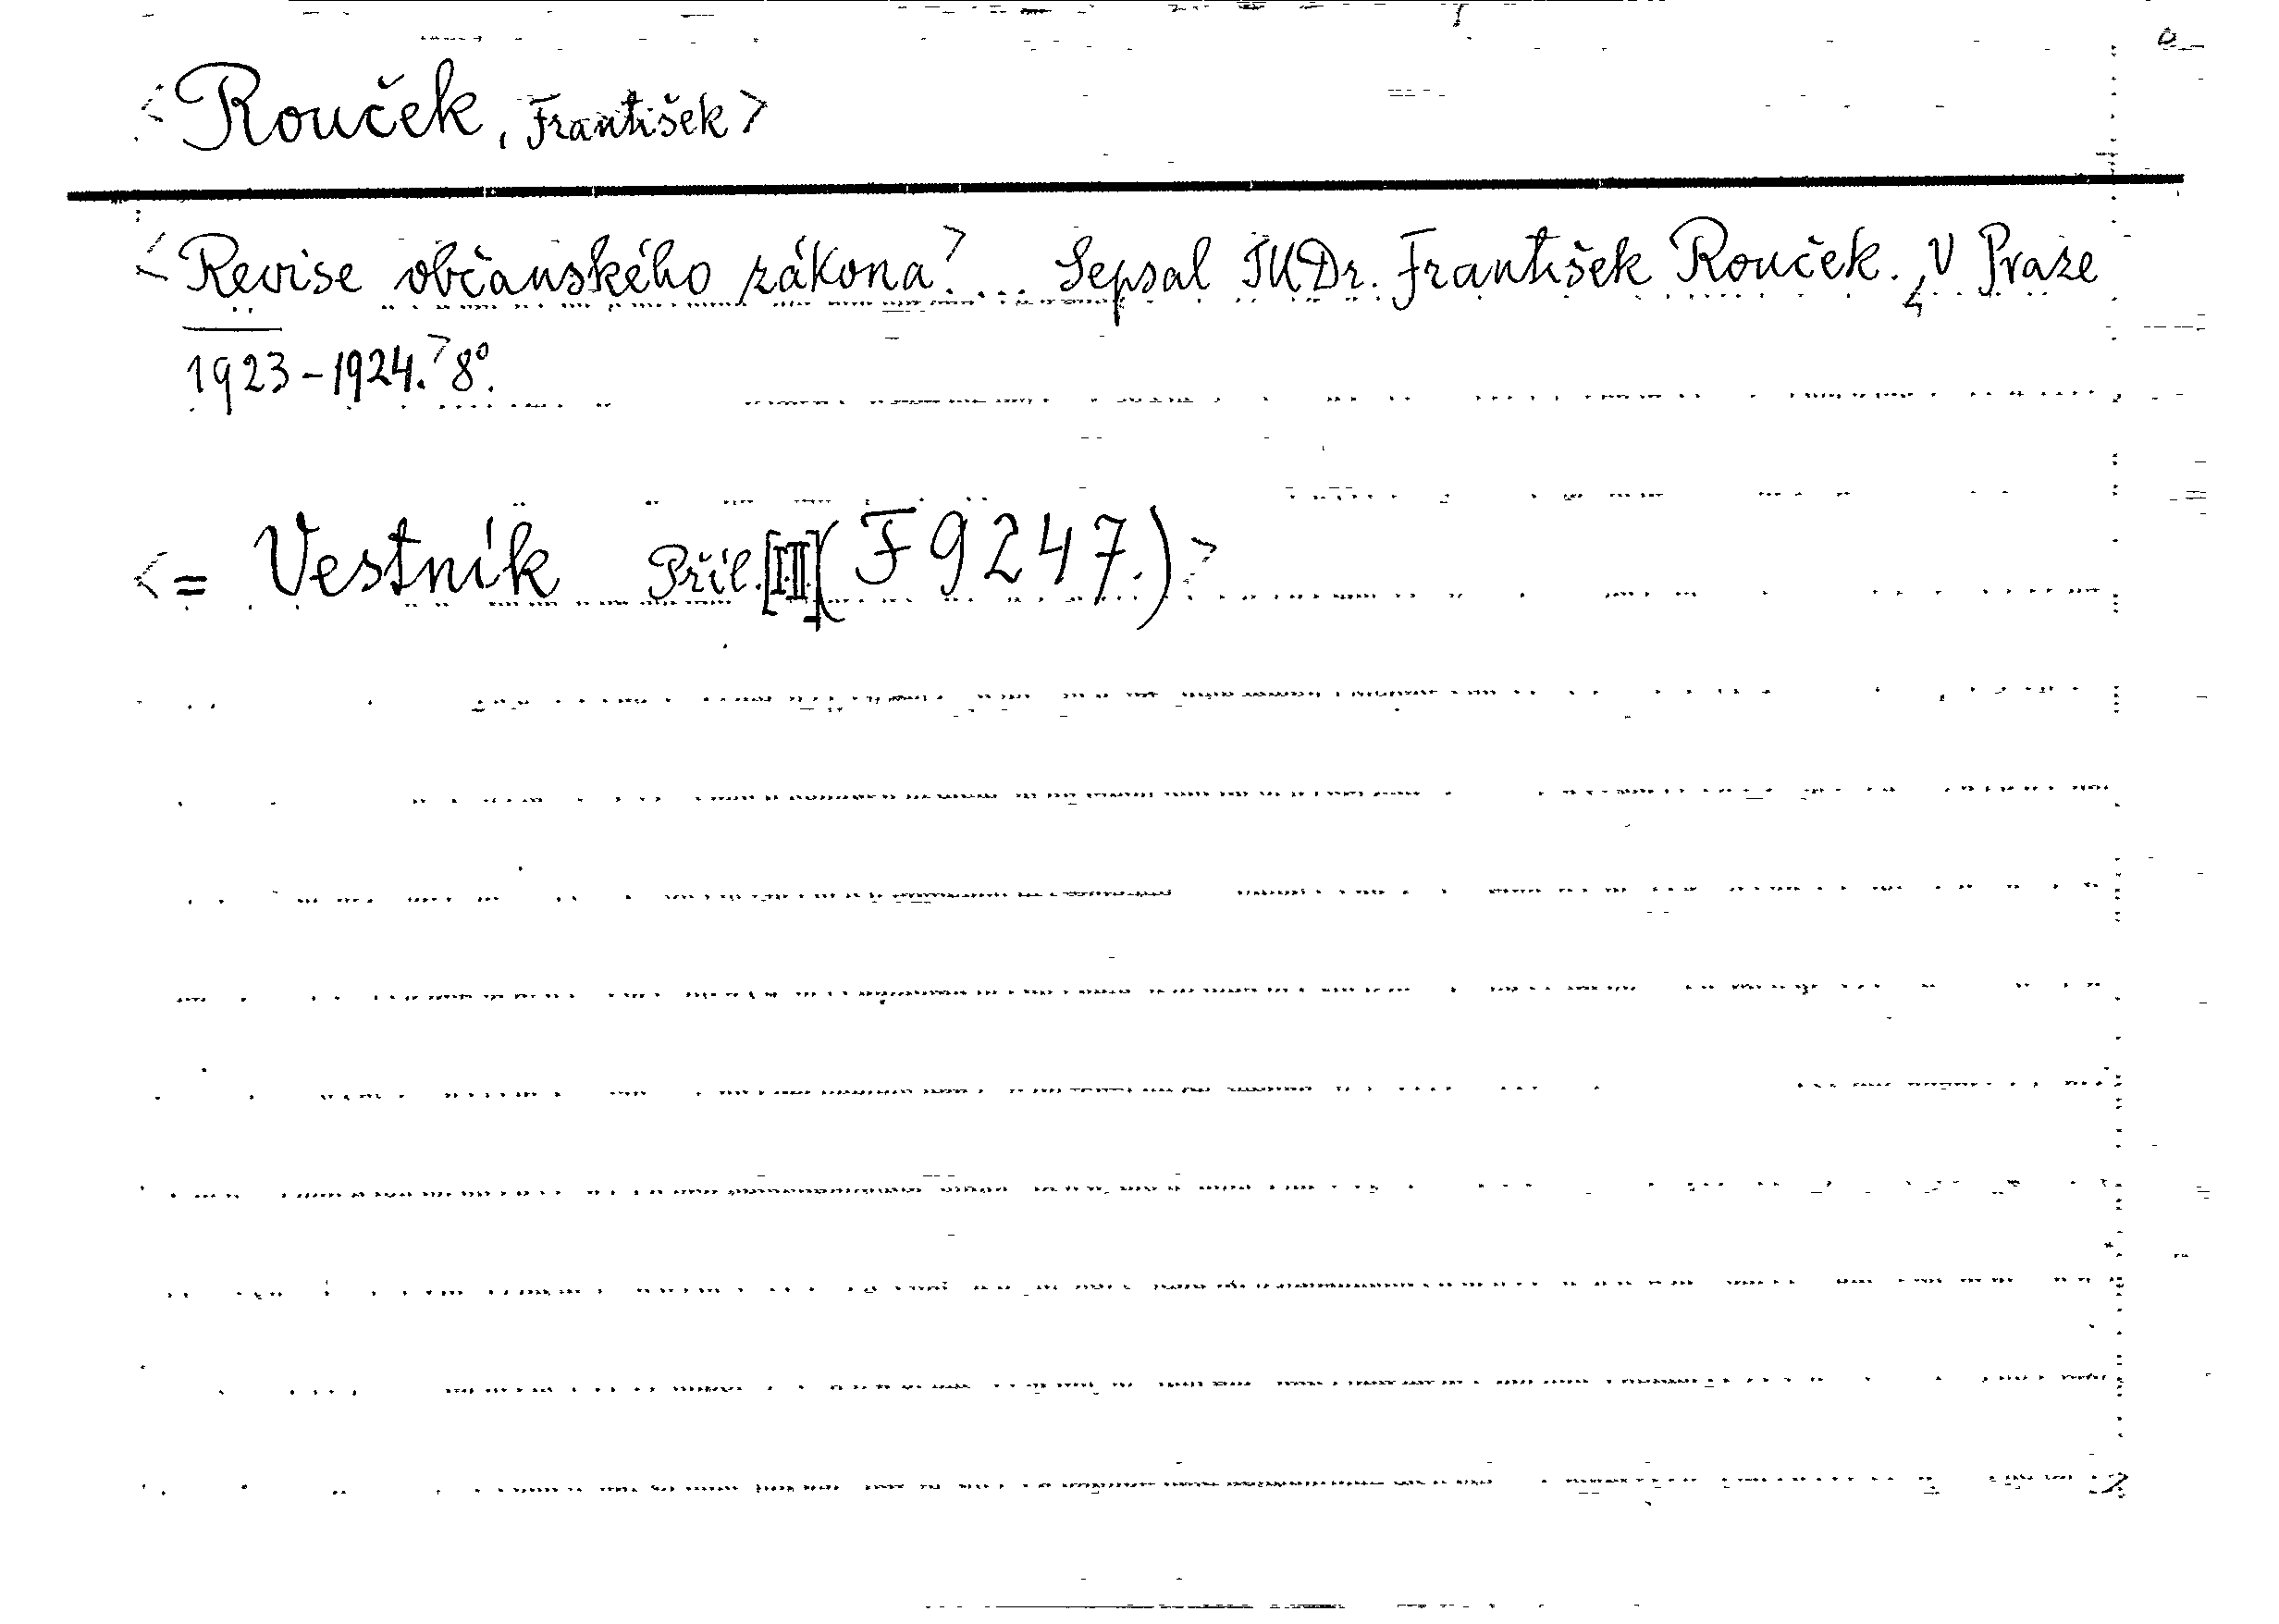 <Rouček, František>
<Revise občanského zákona.>... Sepsal JUDr. František Rouček. <V Praze
1923-1924.> 8°.
<= Vestník Příl. [I-II] (F 9247.)>